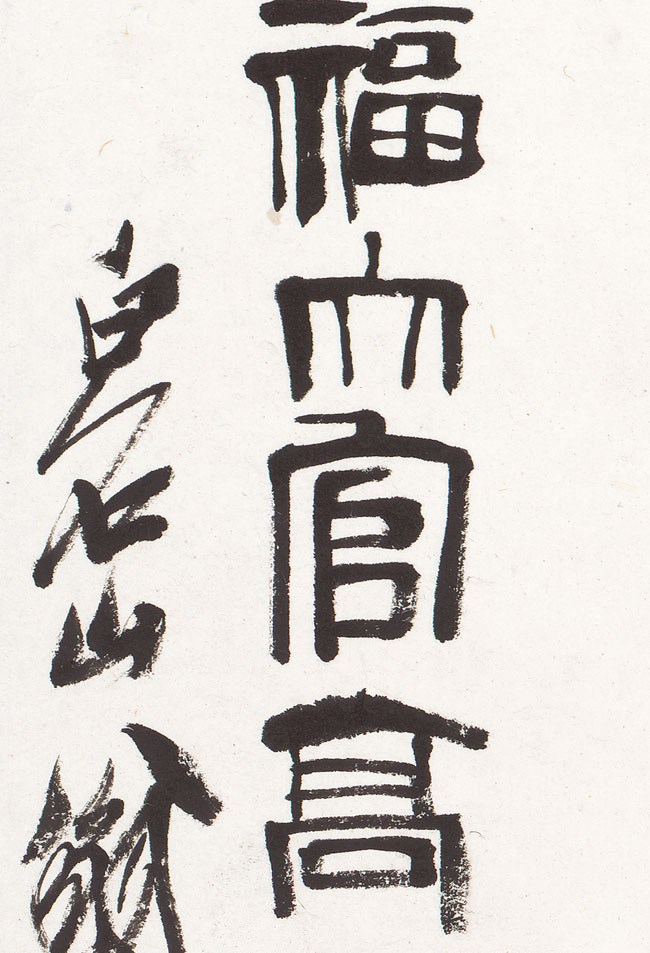 福大官高
白石山翁